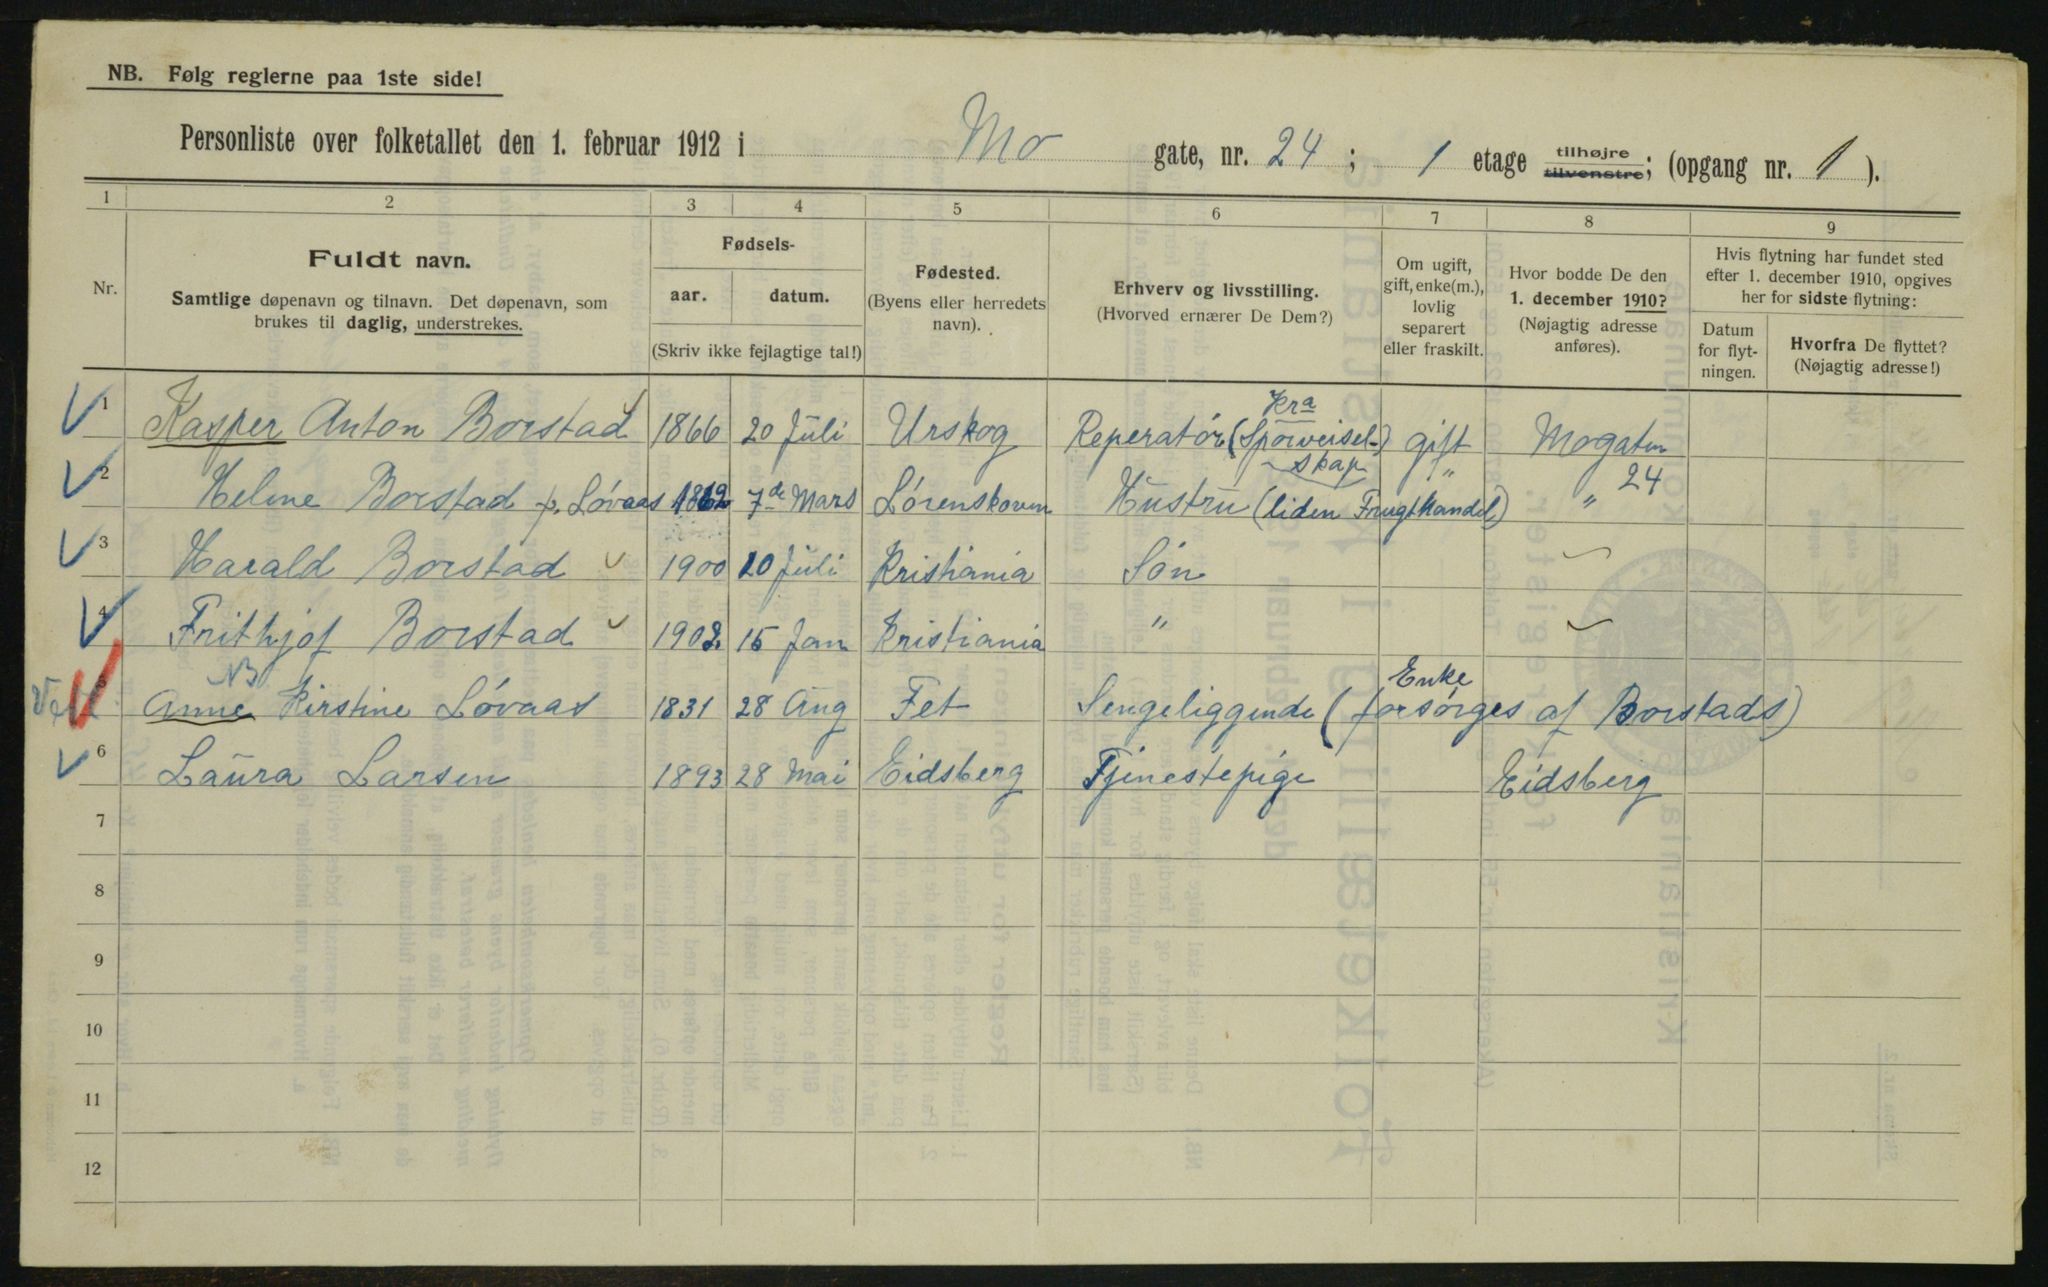 NB. Følg reglerne paa 1ste side!
Personliste over folketallet den 1. februar 1912 i Mo gate, nr. 24; 1 etage tilhøjre tilvenstre; (opgang nr. 1).
1 2 3 4 5 6 7 8 9
Nr.
Fuldt navn.
Samtlige døpenavn og tilnavn. Det døpenavn, som
brukes til daglig, understrekes.
Fødsels-
aar. datum.
(Skriv ikke fejlagtige tal!)
Fødested.
(Byens eller herredets
navn).
Erhverv og livsstilling.
(Hvorved ernærer De Dem?)
Om ugift,
gift, enke(m.),
lovlig
separert
eller fraskilt.
Hvor bodde De den
1. december 1910?
(Nøjagtig adresse
anføres).
Hvis flytning har fundet sted
efter 1. december 1910, opgives
her for sidste flytning:
Datum
for flyt-
ningen.
Hvorfra De flyttet?
(Nøjagtig adresse!)
1 Kasper Anton Borstad 1866 20 Juli Urskog Reperatør (Kra Sporveisel- skap) gift Mogaten 24
2 Helene Borstad f. Løvaas 1862 7de Mars Lørenskoven Hustru (liden Frugthandel) " "
3 Harald Borstad 1900 20 Juli Kristiania Søn
4 Frithjof Borstad 1902 15 Jan Kristiania "
NB
5 Anne Kirstine Løvaas 1831 28 Aug Fet Sengeliggende (forsørges af Borstads) Enke
6 Laura Larsen 1893 28 Mai Eidsberg Tjenestepige Eidsberg
7
8
9
10
11
12